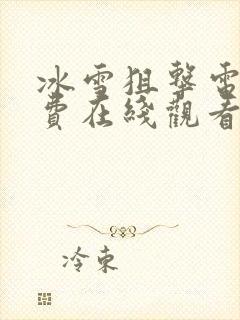 冰雪狙擊電
費在綫觀看
冷東